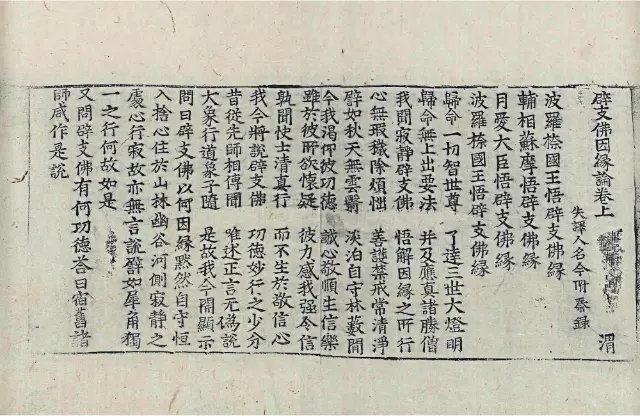 辟支佛因縁論卷上 渭
失譯人名今附秦錄
波羅㮈國王悟辟支佛縁
輔相蘇摩悟辟支佛縁
月愛大臣悟辟支佛縁
波羅㮈國王悟辟支佛縁
歸命一切智世尊 了達三世大燈明
歸命無上出要法 并及應真諸勝僧
我聞寂靜辟支佛 悟解因縁之所行
心無瑕穢除煩惱 善護禁戒常清淨
譬如秋天無雲翳 淡泊自守林藪閒
令我渴仰彼功德 諴心敬順生信樂
雖於彼所欲懷疑 彼力感我强令信
孰聞快士清真行 而不生於敬信心
我今將說辟支佛 功德妙行之少分
昔從先師相傳聞 唯述正言无僞說
大象行道象子隨 是故我今開顯示
問曰辟支佛以何因縁黙然自守恒
入捨心住於山林幽谷河側寂靜之
處心行寂故亦無言說譬如犀角獨
一之行何故如是
又問辟支佛有何功德荅曰宿舊諸
師咸作是說